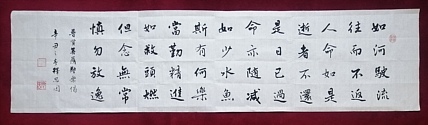 如河駛流
往而不返
人命如是
逝者不還
是日已過
命亦隨減
如少水魚
斯有何樂
當勤精進
如救頭燃
但念無常
慎勿放逸
普賢菩薩警眾偈
辛丑